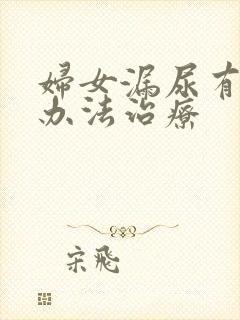 婦女漏尿有
办法治療
宋飛